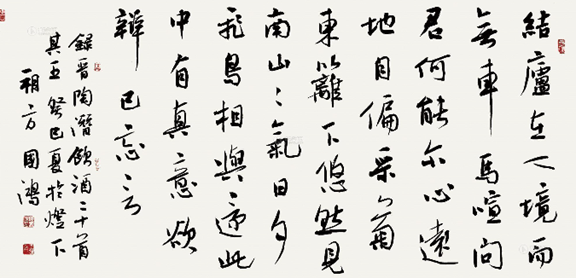 結廬在人境而
無車馬喧問
君何能尔心遠
地自偏采菊
東籬下悠然見
南山〻氣日夕
飛鳥相與還此
中有真意欲
辯已忘言
錄晉陶潛飲酒二十首
其五 癸巳夏於燈下
方國鴻